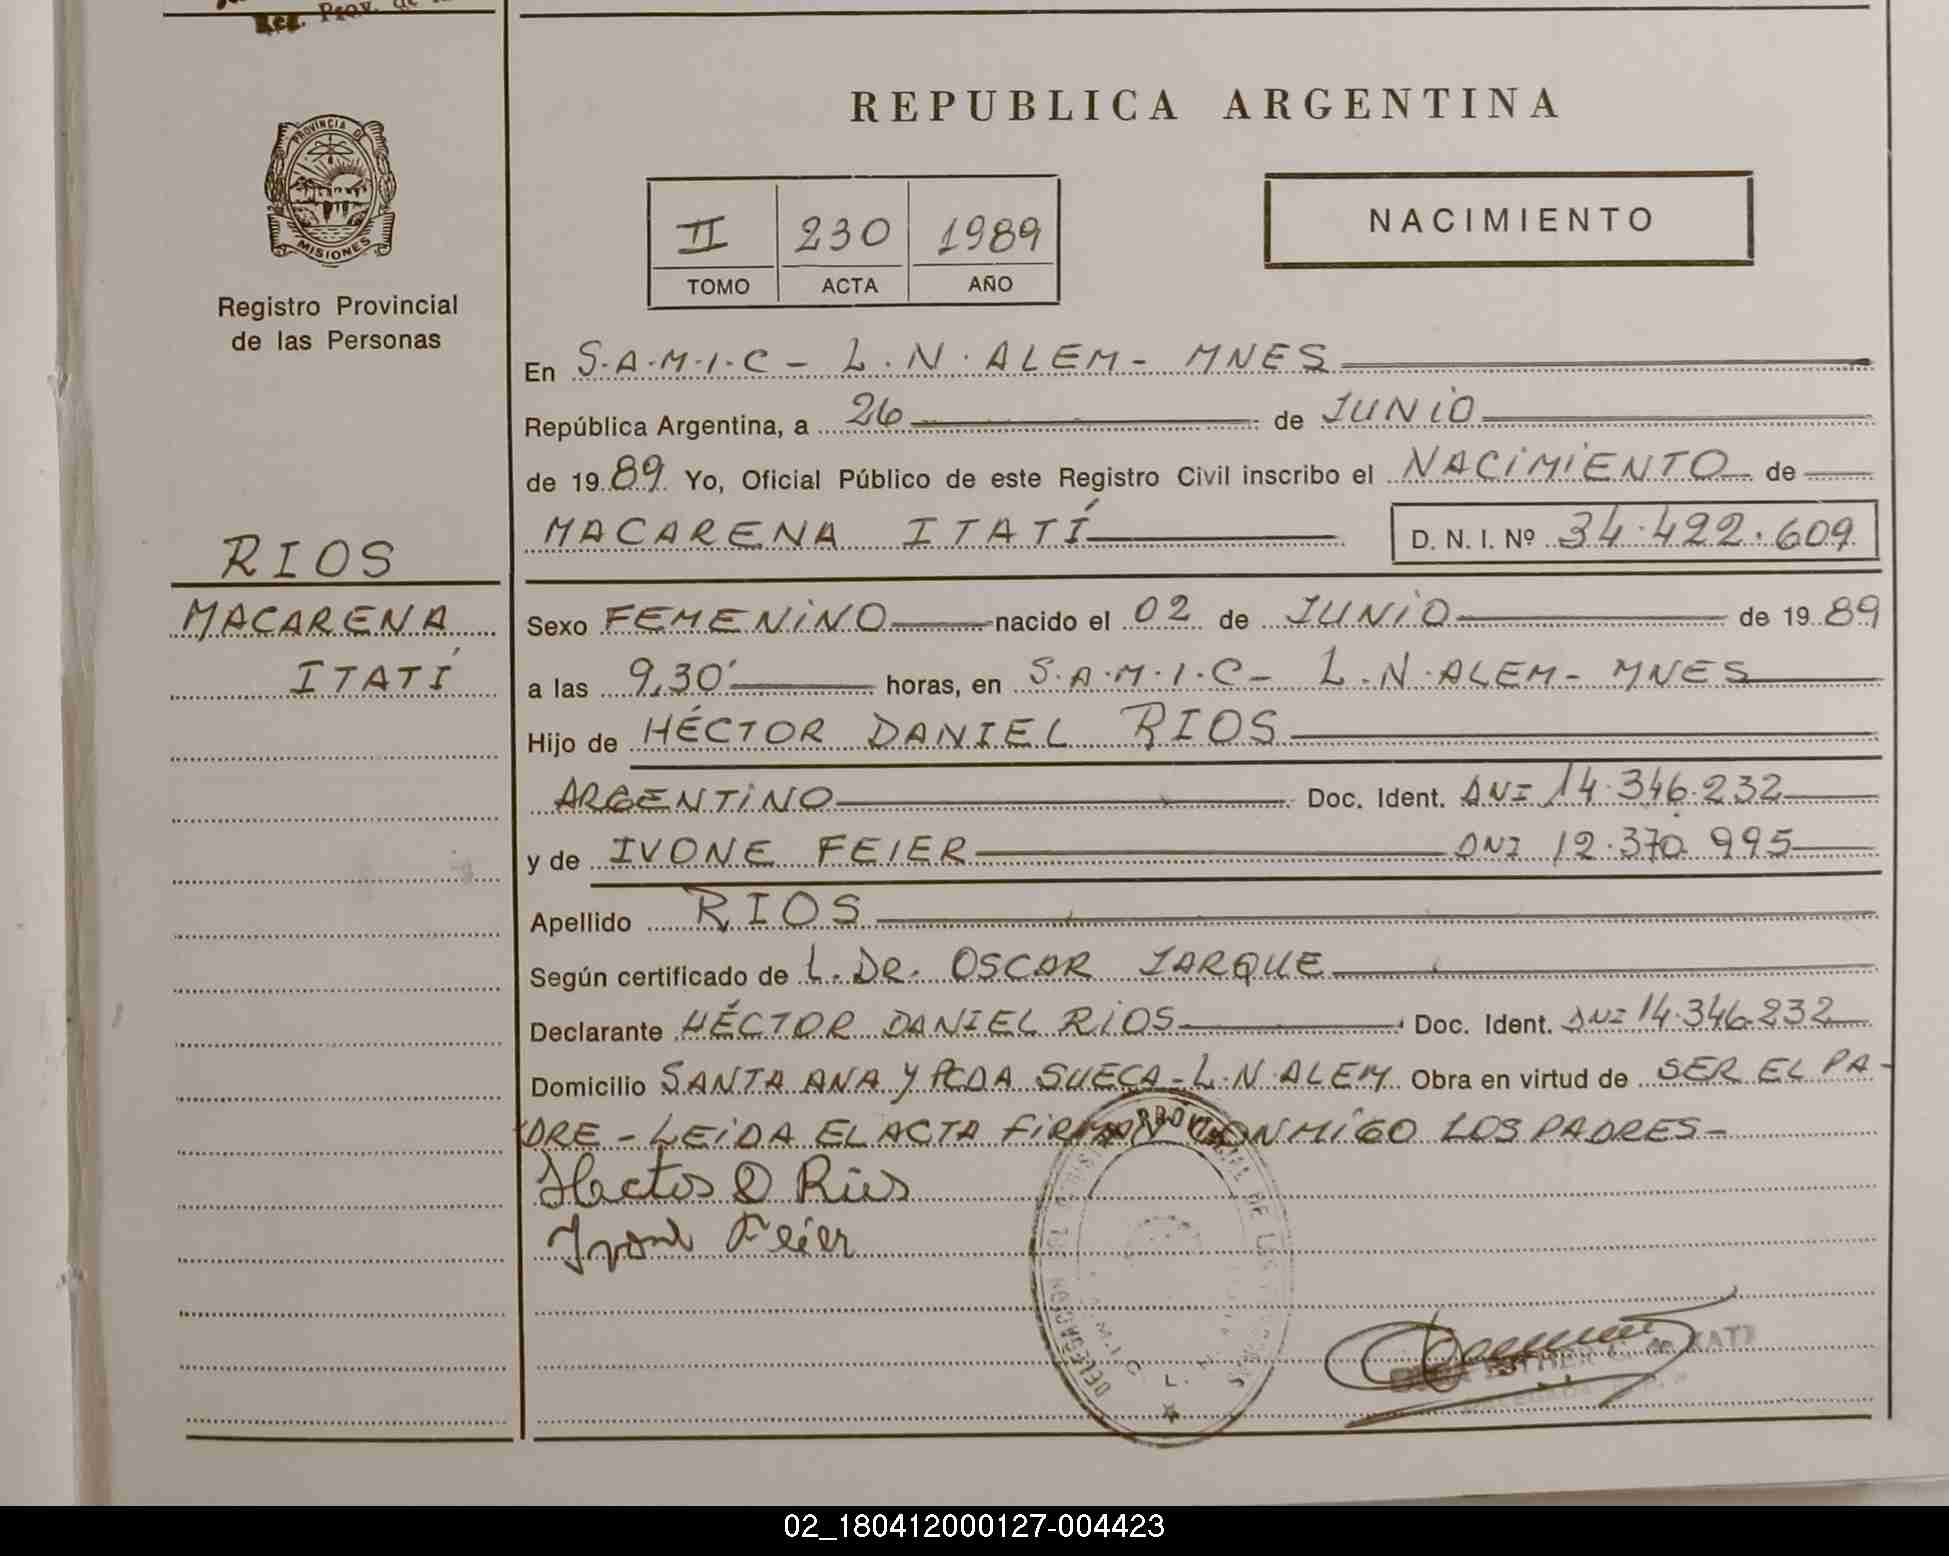 Reg. Prov. de
PROVINCIA DE
MISIONES
Registro Provincial
de las Personas
RIOS
MACARENA
ITATÍ
REPUBLICA ARGENTINA
II 230 1989
TOMO ACTA AÑO
NACIMIENTO
En S.A.M.I.C - L.N. ALEM - MNES
República Argentina, a 26 de JUNIO
de 1989 Yo, Oficial Público de este Registro Civil inscribo el NACIMIENTO de
MACARENA ITATÍ D. N. I. Nº 34.422.609
Sexo FEMENINO nacido el 02 de JUNIO de 1989
a las 9,30' horas, en S.A.M.I.C - L.N. ALEM - MNES
Hijo de HÉCTOR DANIEL RIOS
ARGENTINO Doc. Ident. DNI 14.346.232
y de IVONE FEIER DNI 12.370.995
Apellido RIOS
Según certificado de L. DR. OSCAR JARQUE
Declarante HÉCTOR DANIEL RIOS Doc. Ident. DNI 14.346.232
Domicilio SANTA ANA Y PCDA SUECA - L.N. ALEM Obra en virtud de SER EL PA-
DRE - LEIDA EL ACTA FIRMAN CONMIGO LOS PADRES -
Hector D Rios
Ivone Feier
ESTHER
02_180412000127-004423